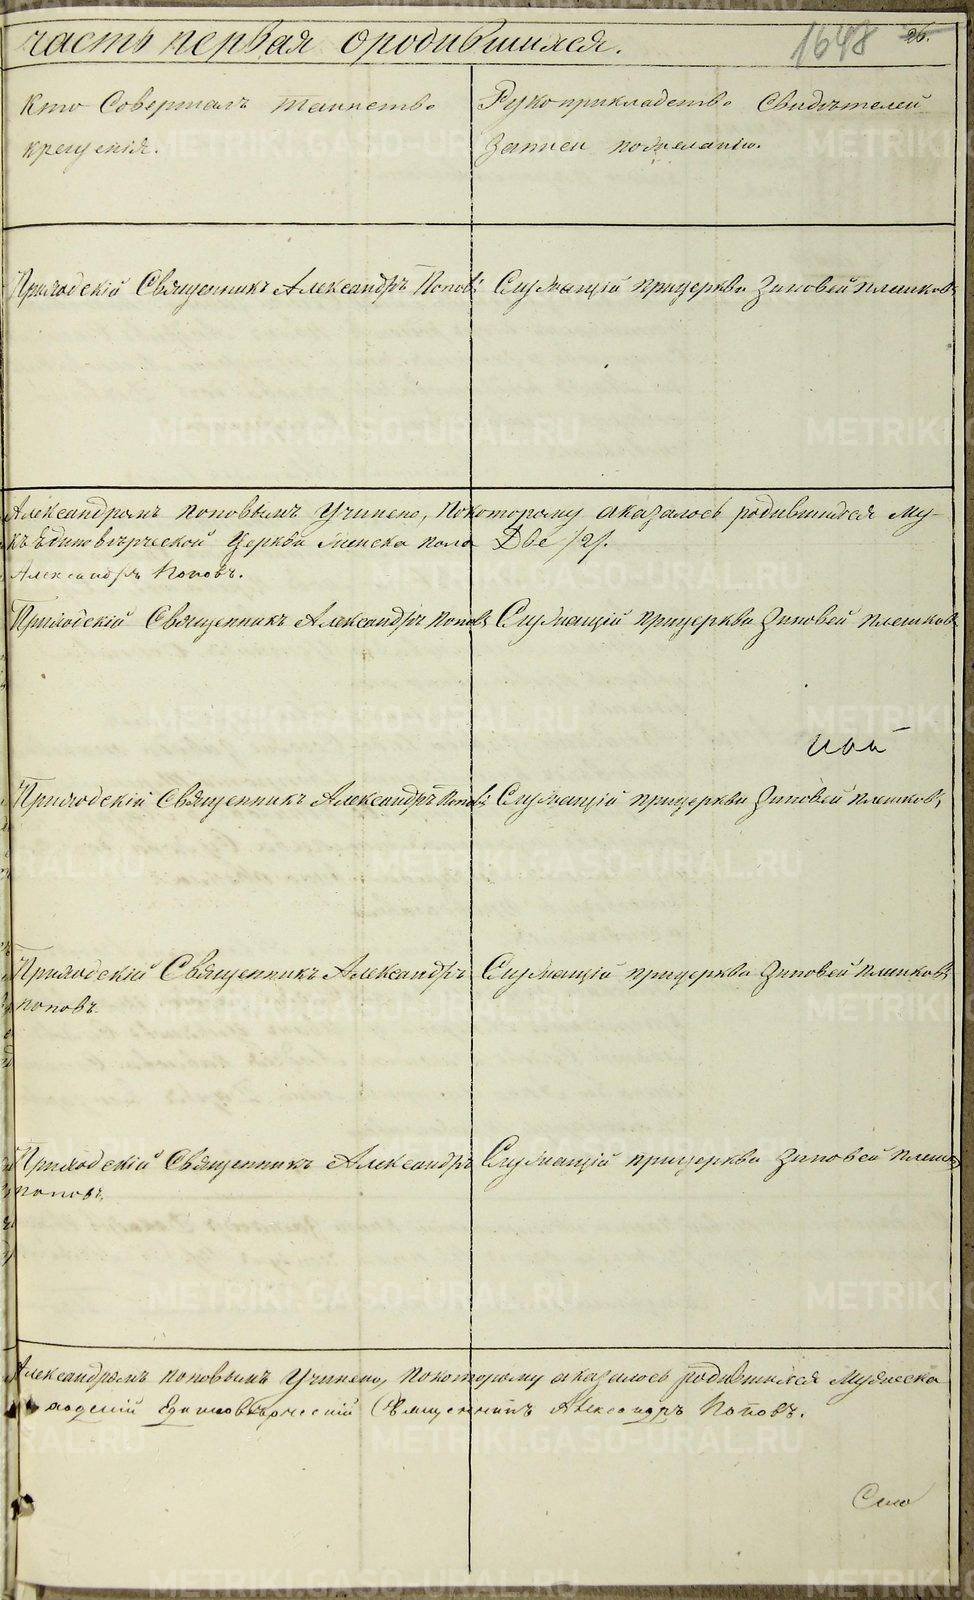 часть первая ородившихся.
1648
26.
Кто Совершалъ таинство
крещенія.
Рукоприкладство Свидѣтелей
Записи пожеланію.
Приходскій Священникъ Александръ Поповъ
Служащій прицеркви Зиновей Плешковъ
Александромъ поповымъ Учинено, покоторому аказалось родившихся Му-
къ Единовѣрческой Церкви женска пола Две /2/.
Александръ Поповъ.
Приходскій Священникъ Александръ Поповъ
Служащій прицеркви Зиновей Плешковъ
Приходскій Священникъ Александръ Поповъ
Служащій прицеркви Зиновей Плешковъ
Приходскій Священникъ Александръ
поповъ.
Служащій прицеркви Зиновей Плешковъ
Приходскій Священникъ Александръ
поповъ.
Служащій прицеркви Зиновей
Александромъ поповымъ Учинено, покоторому аказалось родившихся Мужеска
Единоверческій Священникъ Александръ Поповъ.
METRIKI.GASO-URAL.RU